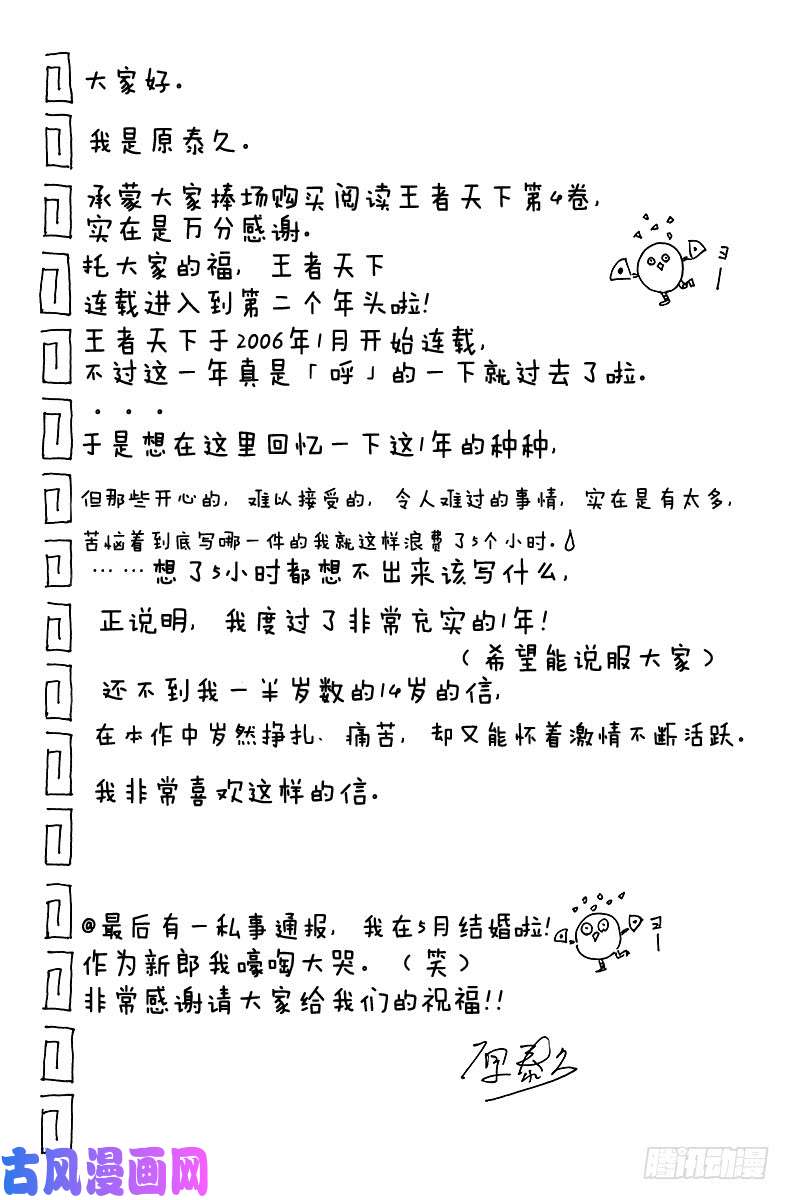 大家好。
我是原泰久。
承蒙大家捧场购买阅读王者天下第4卷,
实在是万分感谢。
托大家的福, 王者天下
连载进入到第二个年头啦!
王者天下于2006年1月开始连载,
不过这一年真是「呼」的一下就过去了啦。
· · ·
于是想在这里回忆一下这1年的种种,
但那些开心的, 难以接受的, 令人难过的事情, 实在是有太多,
苦恼着到底写哪一件的我就这样浪费了5个小时。
……想了5小时都想不出来该写什么,
正说明, 我度过了非常充实的1年!
(希望能说服大家)
还不到我一半岁数的14岁的信,
在本作中岁然挣扎、痛苦, 却又能怀着激情不断活跃。
我非常喜欢这样的信。
@最后有一私事通报, 我在5月结婚啦!
作为新郎我嚎啕大哭。(笑)
非常感谢请大家给我们的祝福!!
原泰久
古风漫画网
腾讯动漫